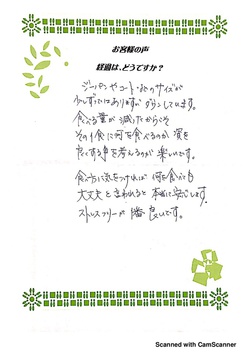 お客様の声
経過は、どうですか？
ジーパンやコート・etcのサイズが
少しずつではありますがダウンしています。
食べる量が減ったからこそ
その1食に何を食べるのか 質を
たいする事を考えるのが楽しいです。
食べ方に気をつければ何を食べても
大丈夫と言われると本当に安心します。
ストレスフリーが勝 良いです。
Scanned with CamScanner